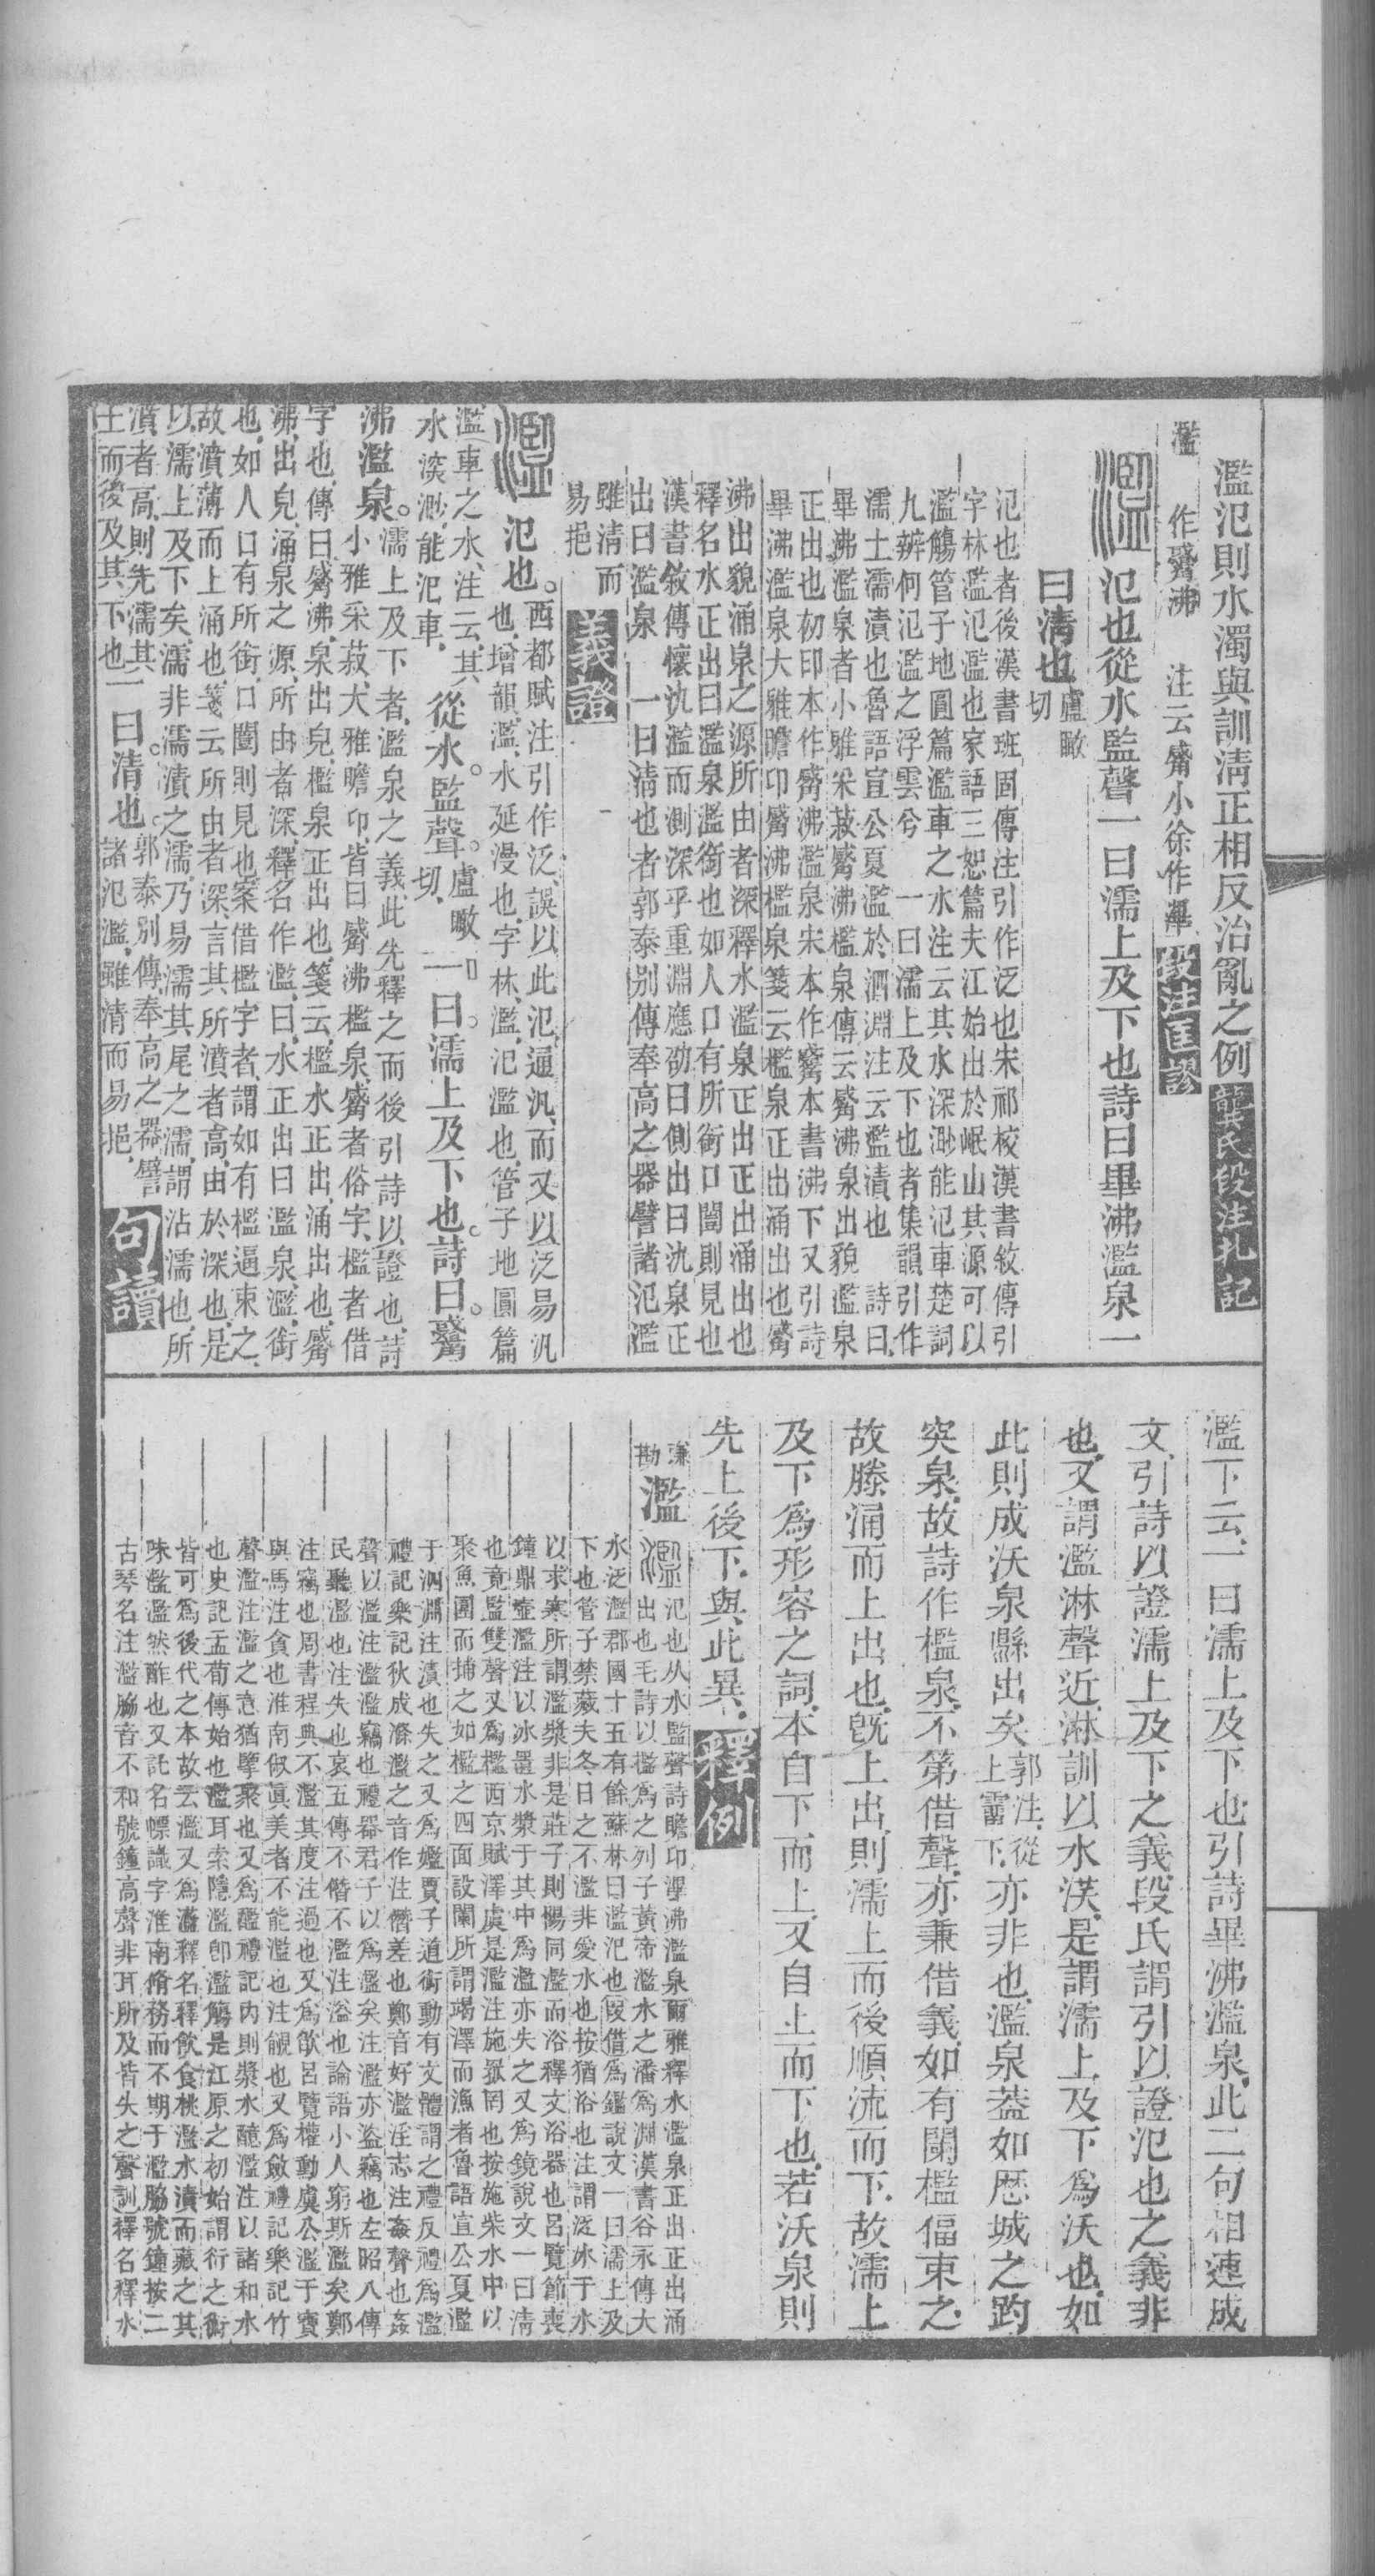 濫氾則水濁與訓清正相反治亂之例龔氏段注札記
濫　作觱沸　注云觱小徐作滭段注匡謬
氾也從水監聲一曰濡上及下也詩曰畢沸濫泉一
曰清也盧瞰
切
氾也者後漢書班固傳注引作泛也宋祁校漢書敘傳引
字林濫氾濫也家語三恕篇夫江始出於岷山其源可以
濫觴管子地圓篇濫車之水注云其水深渺能氾車楚詞
九辨何氾濫之浮雲兮　一曰濡上及下也者集韻引作
濡土濡漬也魯語宣公夏濫於泗淵注云濫漬也　詩曰
畢沸濫泉者小雅采菽觱沸檻泉傳云觱沸泉出貌濫泉
正出也初印本作觱沸濫泉宋本作觱本書沸下又引詩
畢沸濫泉大雅瞻卬觱沸檻泉箋云檻泉正出涌出也觱
沸出貌涌泉之源所由者深釋水濫泉正出正出涌出也
釋名水正出曰濫泉濫銜也如人口有所銜口闓則見也
漢書敘傳懷氿濫而測深乎重淵應劭曰側出曰氿泉正
出曰濫泉　一曰清也者郭泰別傳奉高之器譬諸氾濫
雖清而
易挹　義證
氾也。西都賦注引作泛、誤以此氾、通汎、而又以泛易汎
也、增韻、濫、水延漫也、字林、濫、氾濫也、管子地圓篇
濫車之水、注云、其
水深渺、能氾車、從水。監聲。盧瞰
切、一曰。濡上及下也。詩曰。觱
沸濫泉。濡上及下者、濫泉之義、此先釋之而後引詩以證也、詩
小雅采菽、大雅瞻卬、皆曰觱沸檻泉、觱者俗字、檻者借
字也、傳曰、觱沸、泉出皃、檻泉正出也、箋云、檻水正出、涌出也、觱
沸、出皃、涌泉之源、所由者深、釋名作濫、曰、水正出曰濫泉、濫、銜
也、如人口有所銜、口闓則見也、案借檻字者、謂如有檻逼束之、
故濆薄而上涌也、箋云所由者深、言其所濆者高、由於深也、是
以濡上及下矣、濡非濡漬之濡、乃易濡其尾之濡、謂沾濡也、所
濆者高、則先濡其
上而後及其下也、一曰。清也。郭泰別傳、奉高之器、譬
諸氾濫、雖清而易挹、句讀
濫下云、一曰濡上及下也、引詩畢沸濫泉、此二句相連成
文、引詩以證濡上及下之義、段氏謂引以證氾也之義、非
也、又謂濫淋聲近、淋訓以水沃、是謂濡上及下爲沃也、如
此則成沃泉縣出矣郭注、從
上霤下、亦非也、濫泉葢如歷城之趵
突泉、故詩作檻泉、不第借聲、亦兼借義、如有闌檻偪束之、
故滕涌而上出也、旣上出、則濡上而後順流而下、故濡上
及下爲形容之詞、本自下而上、又自上而下也、若沃泉則
先上後下、與此異、釋例
謙
勘　濫　氾也从水監聲詩瞻卬滭沸濫泉爾雅釋水濫泉正出正出涌
出也毛詩以檻爲之列子黃帝濫水之潘爲淵漢書谷永傳大
水泛濫郡國十五有餘蘇林曰濫氾也叚借爲鑑說文一曰濡上及
下也管子禁藏夫冬日之不濫非愛水也按猶浴也注謂泛冰于水
以求寒所謂濫漿非是莊子則陽同濫而浴釋文浴器也呂覽節喪
鐘鼎壺濫注以冰置水漿于其中爲濫亦失之又爲鏡說文一曰清
也竟監雙聲又爲檻西京賦澤虞是濫注施罛罔也按施柴水中以
聚魚圍而捕之如檻之四面設闌所謂竭澤而漁者魯語宣公夏濫
于泗淵注漬也失之又爲嬐賈子道術動有文體謂之禮反禮爲濫
禮記樂記狄成滌濫之音作注僭差也鄭音好濫淫志注姦聲也姦
聲以濫注濫濫竊也禮器君子以爲濫矣注濫亦盜竊也左昭八傳
民聽濫也注失也哀五傳不僭不濫注溢也論語小人窮斯濫矣鄭
注竊也周書程典不濫其度注過也又爲欿呂覽權動虞公濫于寶
與馬注貪也淮南俶眞美者不能濫也注覦也又爲斂禮記樂記竹
聲濫注濫之意猶擥聚也又爲醶禮記內則漿水醷濫注以諸和水
也史記孟荀傳始也濫耳索隱濫卽濫觴是江原之初始謂衍之術
皆可爲後代之本故云濫又爲灠釋名釋飲食桃濫水漬而藏之其
味濫濫然酢也又託名幖識字淮南脩務而不期于濫脇號鐘按二
古琴名注濫脇音不和號鐘高聲非耳所及皆失之聲訓釋名釋水